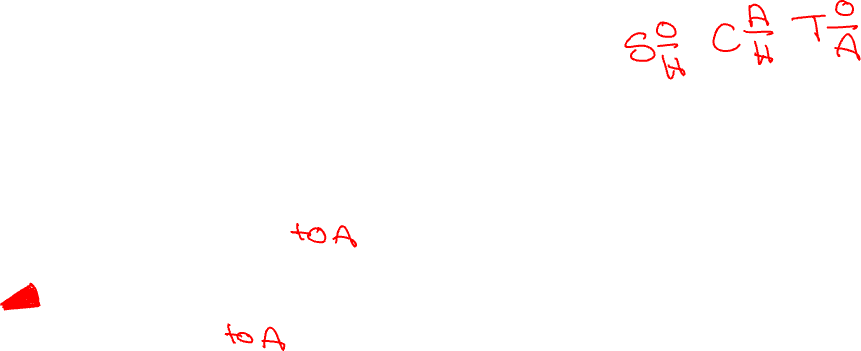 S O/H C A/H T O/A
toA
toA